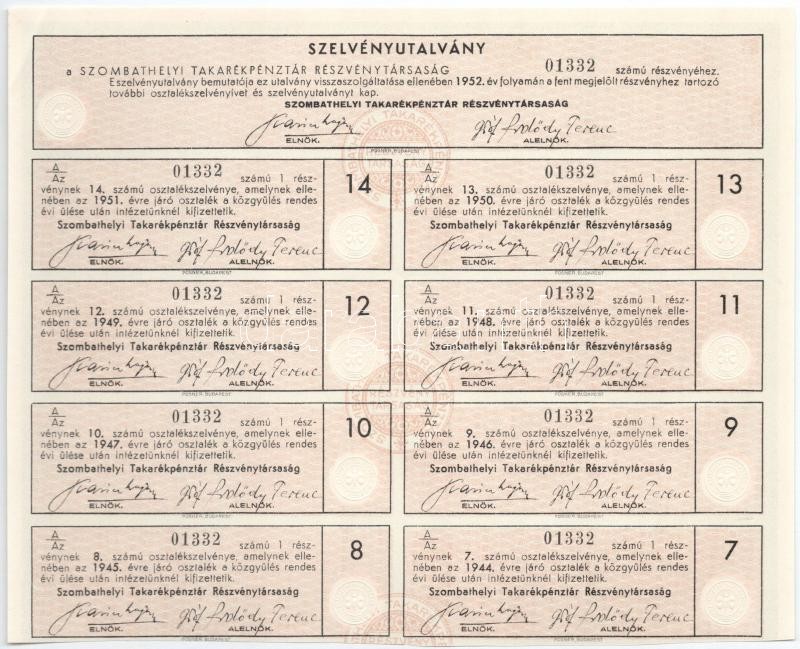 SZELVÉNYUTALVÁNY
a SZOMBATHELYI TAKARÉKPÉNZTÁR RÉSZVÉNYTÁRSASÁG 01332 számú részvényéhez.
E szelvényutalvány bemutatója ez utalvány visszaszolgáltatása ellenében 1952. év folyamán a fent megjelölt részvényhez tartozó
további osztalékszelvényivet és szelvényutalványt kap.
SZOMBATHELYI TAKARÉKPÉNZTÁR RÉSZVÉNYTÁRSASÁG
ELNÖK. ALELNÖK.
POSNER, BUDAPEST
A/Az 01332 számú 1 rész-
vénynek 14. számú osztalékszelvénye, amelynek elle-
nében az 1951. évre járó osztalék a közgyűlés rendes
évi ülése után intézetünknél kifizettetik.
Szombathelyi Takarékpénztár Részvénytársaság
ELNÖK. ALELNÖK.
14
POSNER, BUDAPEST
A/Az 01332 számú 1 rész-
vénynek 13. számú osztalékszelvénye, amelynek elle-
nében az 1950. évre járó osztalék a közgyűlés rendes
évi ülése után intézetünknél kifizettetik.
Szombathelyi Takarékpénztár Részvénytársaság
ELNÖK. ALELNÖK.
13
POSNER, BUDAPEST
A/Az 01332 számú 1 rész-
vénynek 12. számú osztalékszelvénye, amelynek elle-
nében az 1949. évre járó osztalék a közgyűlés rendes
évi ülése után intézetünknél kifizettetik.
Szombathelyi Takarékpénztár Részvénytársaság
ELNÖK. ALELNÖK.
12
POSNER, BUDAPEST
A/Az 01332 számú 1 rész-
vénynek 11. számú osztalékszelvénye, amelynek elle-
nében az 1948. évre járó osztalék a közgyűlés rendes
évi ülése után intézetünknél kifizettetik.
Szombathelyi Takarékpénztár Részvénytársaság
ELNÖK. ALELNÖK.
11
POSNER, BUDAPEST
A/Az 01332 számú 1 rész-
vénynek 10. számú osztalékszelvénye, amelynek elle-
nében az 1947. évre járó osztalék a közgyűlés rendes
évi ülése után intézetünknél kifizettetik.
Szombathelyi Takarékpénztár Részvénytársaság
ELNÖK. ALELNÖK.
10
POSNER, BUDAPEST
A/Az 01332 számú 1 rész-
vénynek 9. számú osztalékszelvénye, amelynek elle-
nében az 1946. évre járó osztalék a közgyűlés rendes
évi ülése után intézetünknél kifizettetik.
Szombathelyi Takarékpénztár Részvénytársaság
ELNÖK. ALELNÖK.
9
POSNER, BUDAPEST
A/Az 01332 számú 1 rész-
vénynek 8. számú osztalékszelvénye, amelynek elle-
nében az 1945. évre járó osztalék a közgyűlés rendes
évi ülése után intézetünknél kifizettetik.
Szombathelyi Takarékpénztár Részvénytársaság
ELNÖK. ALELNÖK.
8
POSNER, BUDAPEST
A/Az 01332 számú 1 rész-
vénynek 7. számú osztalékszelvénye, amelynek elle-
nében az 1944. évre járó osztalék a közgyűlés rendes
évi ülése után intézetünknél kifizettetik.
Szombathelyi Takarékpénztár Részvénytársaság
ELNÖK. ALELNÖK.
7
POSNER, BUDAPEST